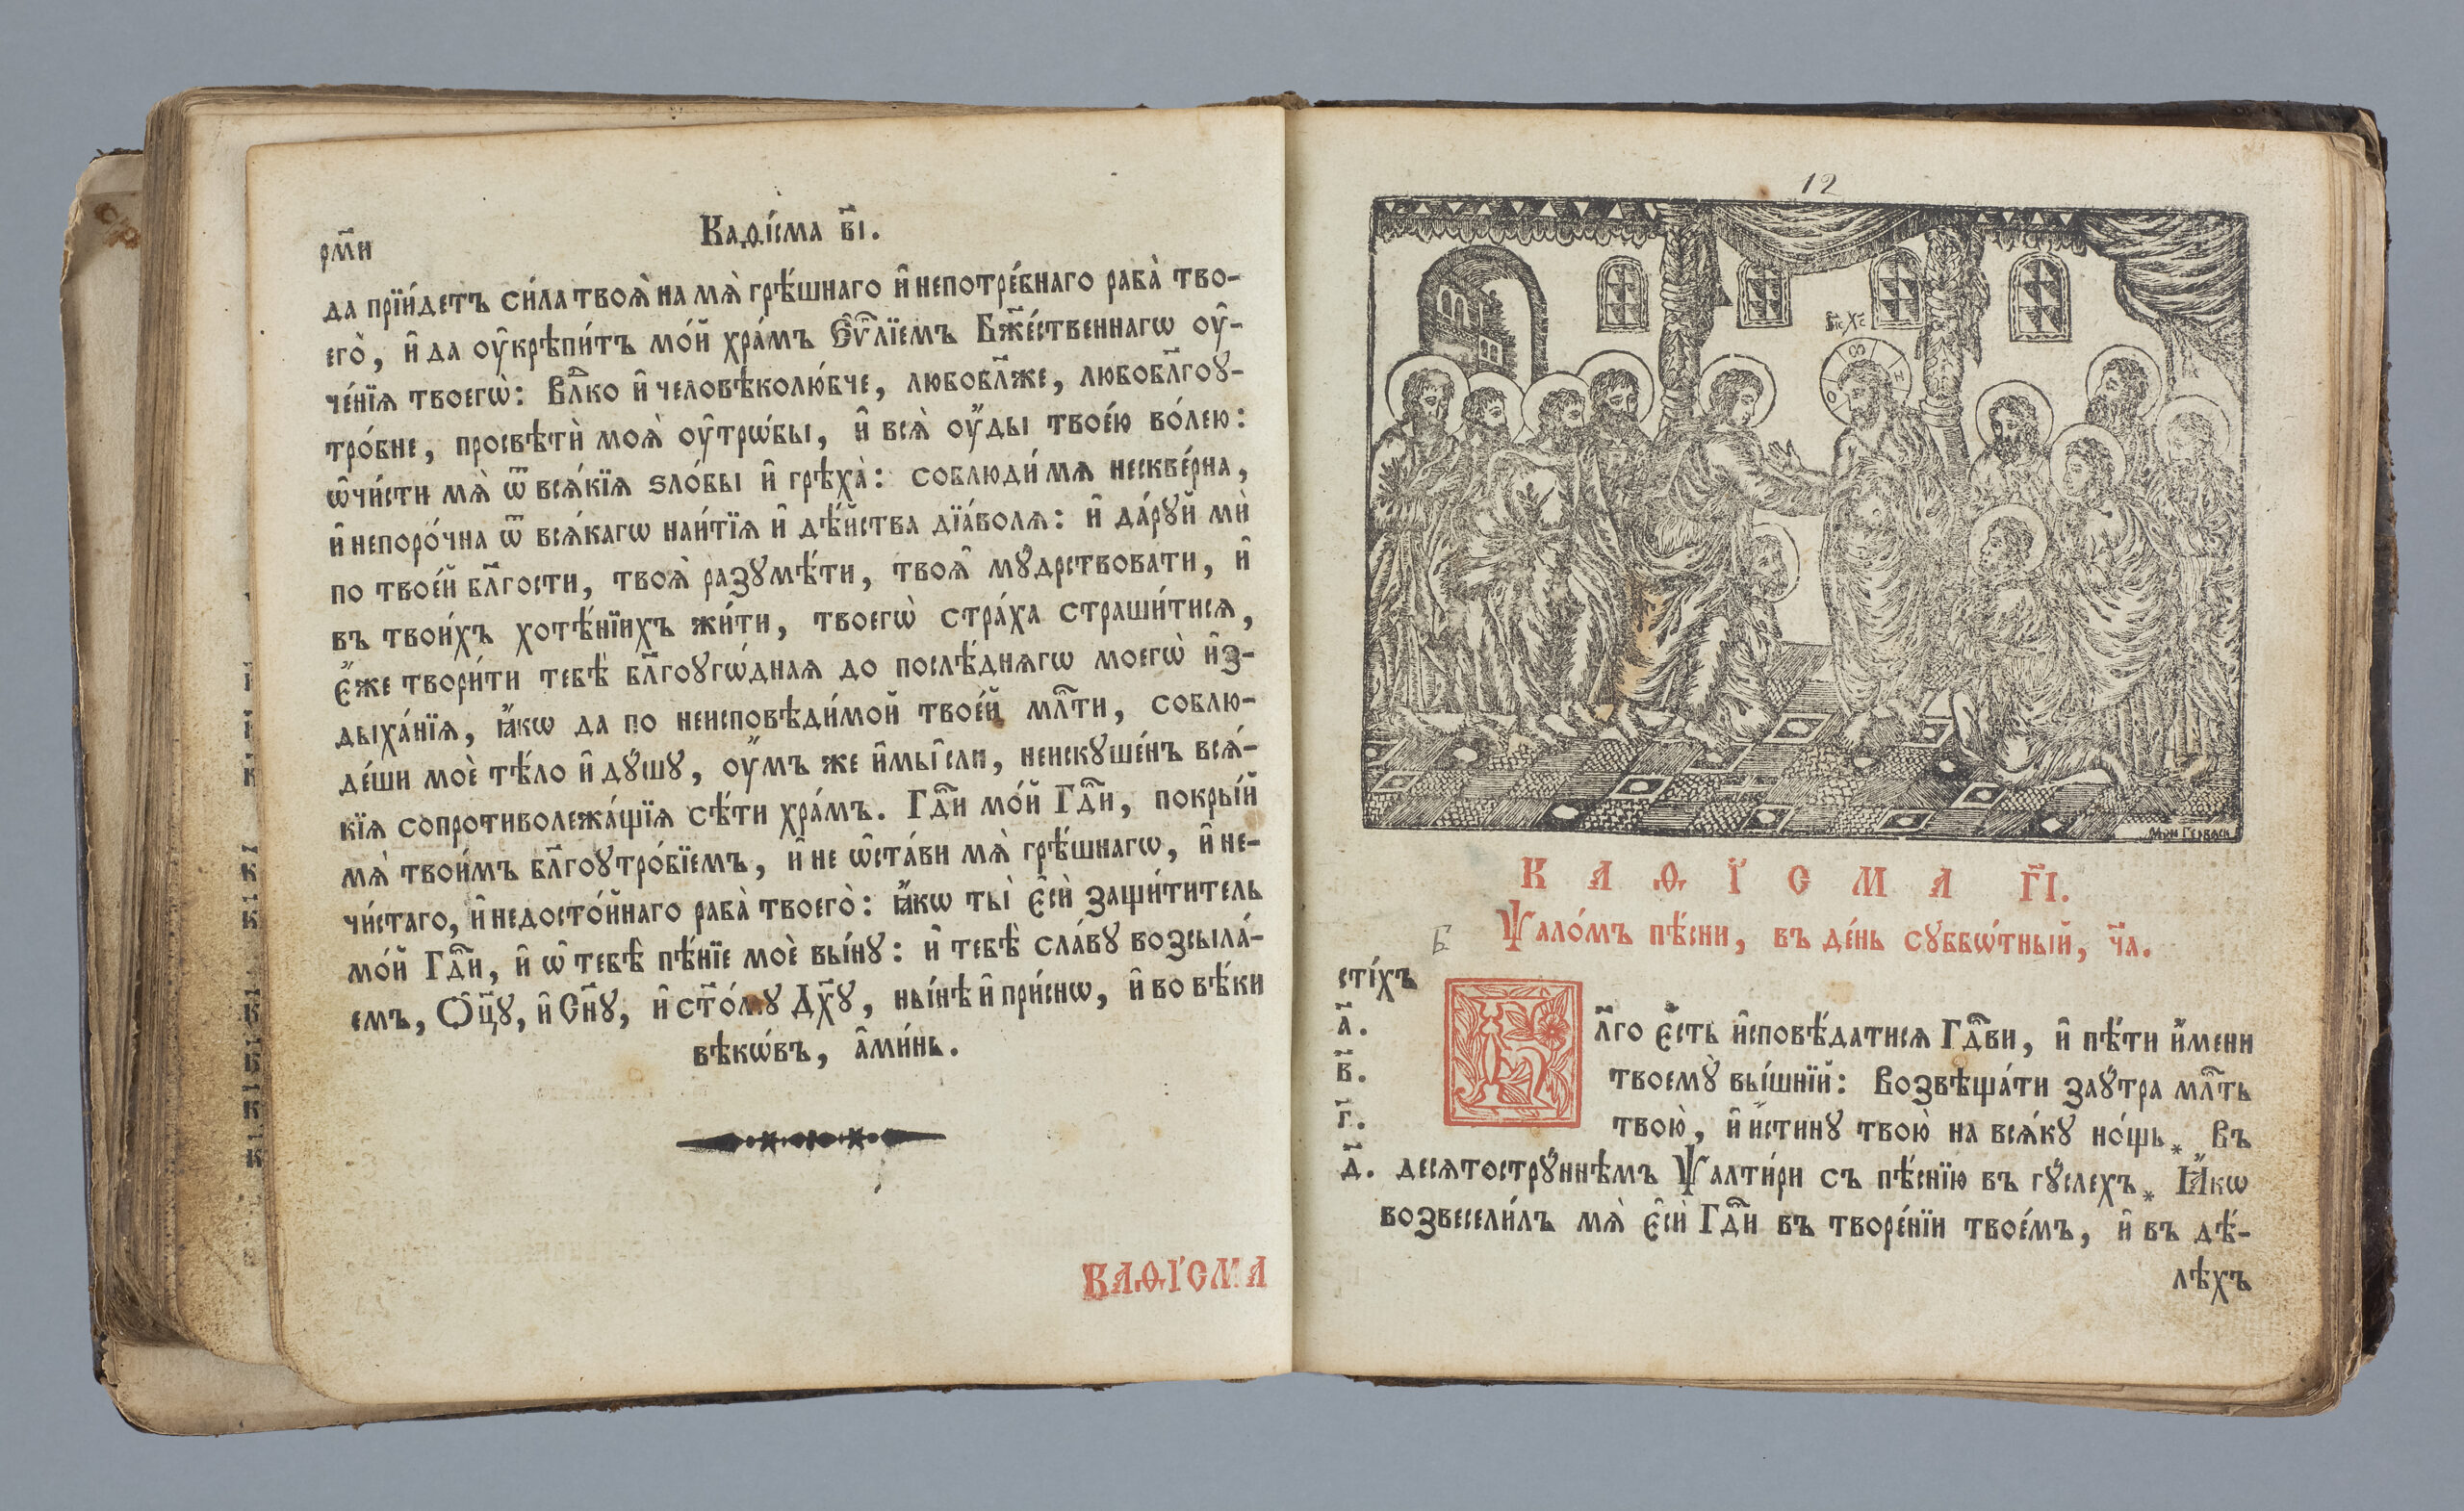 рм҃и
Каѳі́сма в҃і.
да прїи́детъ си́ла твоѧ̀ на мѧ̀ грѣ́шнаго и҆ непотре́бнаго раба̀ тво-
его̀, и҆ да ѹ҆крѣпи́тъ мо́й хра́мъ Є҆ѵⷢ҇лїемъ Бж҃е́ственнагѡ ѹ҆-
че́нїѧ твоегѡ̀: Влⷣко и҆ человѣколю́бче, любобл҃же, любобл҃гоꙋ-
тро́бне, просвѣтѝ моѧ̀ ѹ҆трѡ́бы, и҆ всѧ̀ ѹ҆́ды твое́ю во́лею:
ѡ҆чи́сти мѧ̀ ѿ всѧ́кїѧ ѕло́бы и҆ грѣха̀: соблюди́ мѧ нескве́рна,
и҆ непоро́чна ѿ всѧ́кагѡ наи́тїѧ и҆ дѣ́йства дїа́волѧ: и҆ да́рꙋй мѝ
по твое́й бл҃гости, твоѧ̀ разꙋмѣ́ти, твоѧ̑ мꙋ́дрствовати, и҆
въ твои́хъ хотѣ́нїихъ жи́ти, твоегѡ̀ стра́ха страши́тисѧ,
є҆́же твори́ти тебѣ̀ бл҃гоꙋгѡ́днаѧ до послѣ́днѧгѡ моегѡ̀ и҆з-
дыха́нїѧ, ꙗ҆́кѡ да по неисповѣди́мой твое́й млⷭ҇ти, соблю-
де́ши моѐ тѣ́ло и҆ дꙋ́шꙋ, ѹ҆́мъ же и҆ мы̑сли, неискꙋше́нъ всѧ́-
кїѧ сопротиволежа́щїѧ сѣ́ти хра́мъ. Гдⷭ҇и мо́й Гдⷭ҇и, покры́й
мѧ̀ твои́мъ бл҃гоꙋтро́бїемъ, и҆ не ѡ҆ста́ви мѧ̀ грѣ́шнагѡ, и҆ не-
чи́стаго, и҆ недосто́йнаго раба̀ твоего̀: ꙗ҆́кѡ ты̀ є҆сѝ защи́титель
мо́й Гдⷭ҇и, и҆ ѡ҆ тебѣ̀ пѣ́нїе моѐ вы́нꙋ: и҆ тебѣ̀ сла́вꙋ возсыла́-
емъ, Ѻ҆ц҃ꙋ, и҆ Сн҃ꙋ, и҆ ст҃о́мꙋ Дх҃ꙋ, ны́нѣ и҆ при́снѡ, и҆ во вѣ́ки
вѣкѡ́въ, а҆ми́нь.
КАѲІ́СМА
12
І҆с Хс
Ѻ Ѡ Н
Мон Гервасі
КАѲІ́СМА г҃і.
Б
Ѱало́мъ пѣ́сни, въ де́нь сꙋббѡ́тный, ч҃а.
сті́хъ
а҃. Бл҃го є҆́сть и҆сповѣ́датисѧ Гдⷭ҇ви, и҆ пѣ́ти и҆́мени
в҃. твоемꙋ̀ вы́шнїй: Возвѣща́ти заꙋ́тра млⷭ҇ть
г҃. твою̀, и҆ и҆́стинꙋ твою̀ на всѧ́кꙋ но́щь⁎ Въ
д҃. десѧтострꙋ́ннѣмъ Ѱалти́ри съ пѣ́снїю въ гꙋ́слехъ⁎ Ꙗ҆́кѡ
возвесели́лъ мѧ̀ є҆сѝ Гдⷭ҇и въ творе́нїи твое́мъ, и҆ въ дѣ́-
лѣхъ